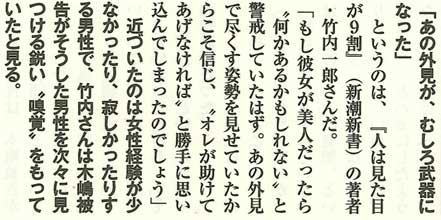 「あの外見が、むしろ武器に
なった」
というのは、『人は見た目
が9割』（新潮新書）の著者
・竹内一郎さんだ。
「もし彼女が美人だったら
〝何かあるかもしれない〟と
警戒していたはず。あの外見
で尽くす姿勢を見せていたか
らこそ信じ、〝オレが助けて
あげなければ〟と勝手に思い
込んでしまったのでしょう」
近づいたのは女性経験が少
なかったり、寂しかったりす
る男性で、竹内さんは木嶋被
告がそうした男性を次々に見
つける鋭い〝嗅覚〟をもって
いたと見る。